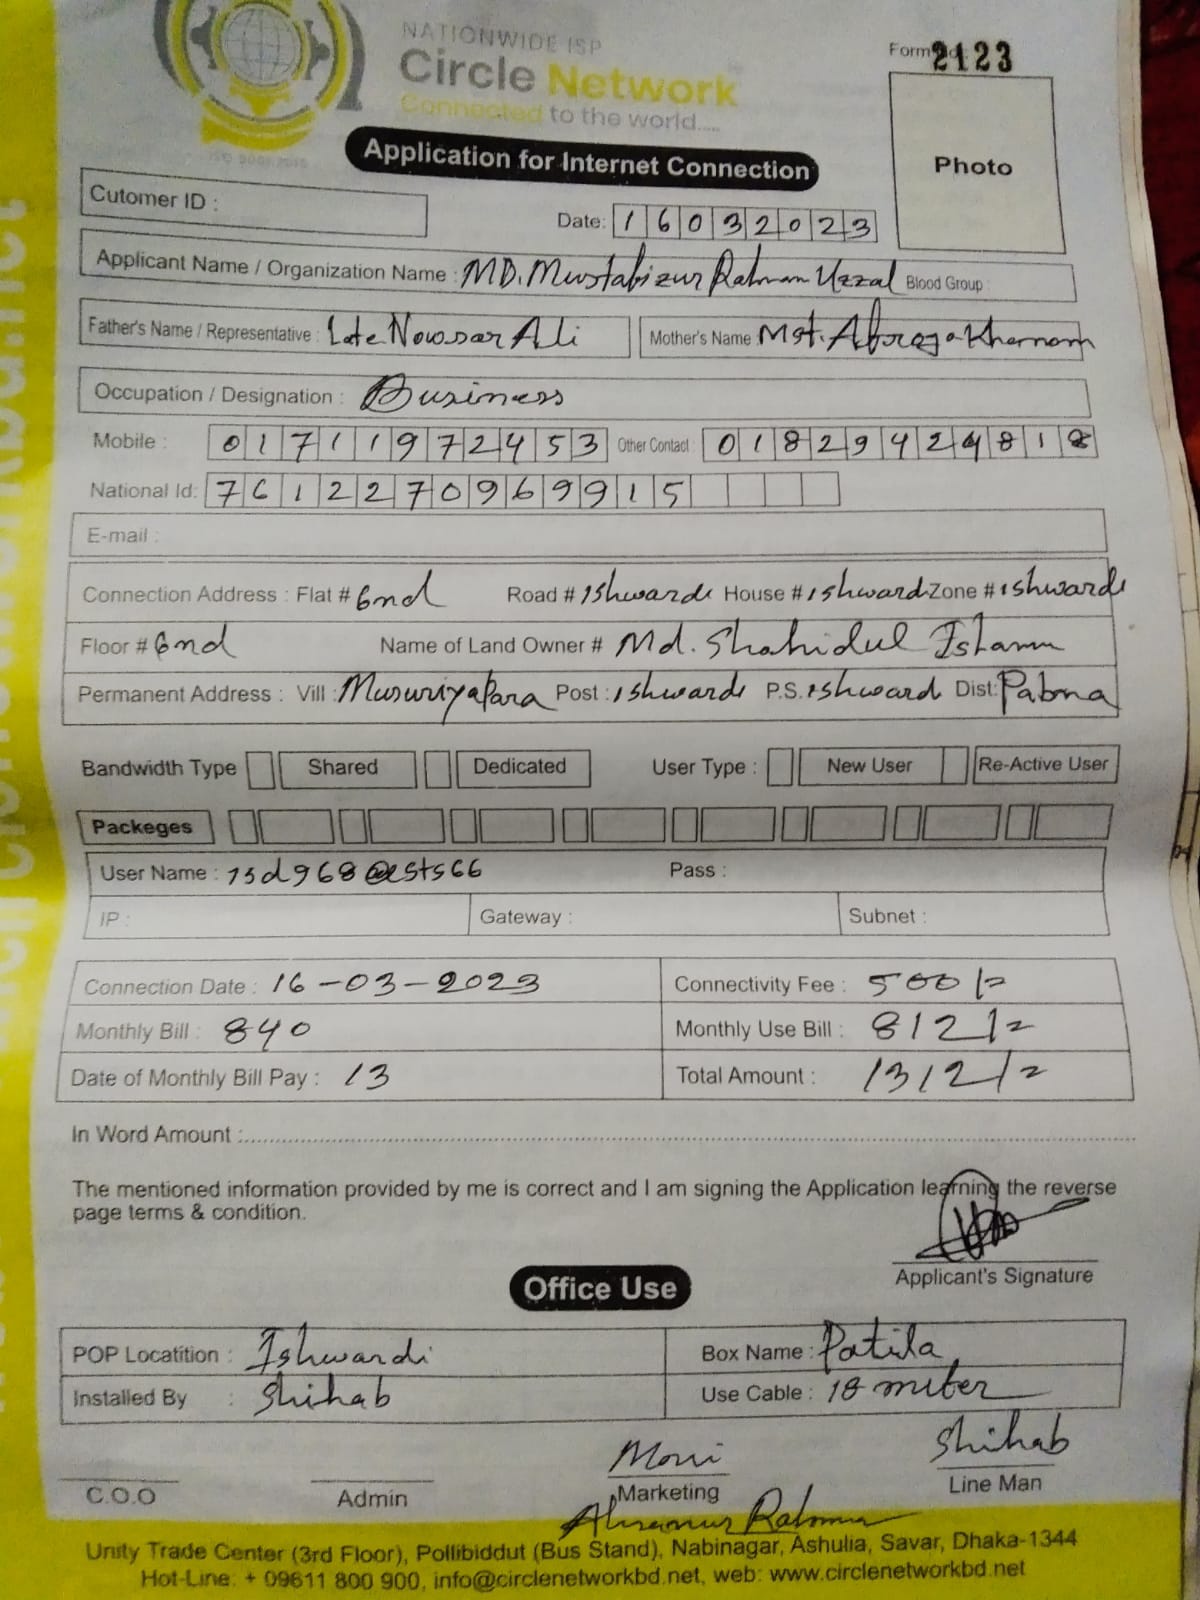 NATIONWIDE ISP
Circle Network
Connected to the world.....
ISO 9001:2015
Form 2123
Photo
Application for Internet Connection
Cutomer ID :
Date: 16032023
Applicant Name / Organization Name : MD. Mustabizur Rahman Uzzal Blood Group :
Father's Name / Representative : Late Nowsar Ali Mother's Name : Mst. Khamam
Occupation / Designation : Business
Mobile : 01711972453 Other Contact : 01829424818
National Id: 7612270969915
E-mail :
Connection Address : Flat # 6nd Road # Ishwardi House # Ishwardi Zone # Ishwardi
Floor # 6nd Name of Land Owner # Md. Shahidul Islam
Permanent Address : Vill : Musuriyapara Post : Ishwardi P.S. Ishwardi Dist: Pabna
Bandwidth Type Shared Dedicated User Type : New User Re-Active User
Packeges
User Name : isd968@sts66 Pass :
IP : Gateway : Subnet :
Connection Date : 16-03-2023 Connectivity Fee : 500/=
Monthly Bill : 840 Monthly Use Bill : 812/=
Date of Monthly Bill Pay : 13 Total Amount : 1312/=
In Word Amount :
The mentioned information provided by me is correct and I am signing the Application learning the reverse
page terms & condition.
Applicant's Signature
Office Use
POP Locatition : Ishwardi Box Name : Patila
Installed By : Shihab Use Cable : 18 miter
Moni Shihab
C.O.O Admin Marketing Line Man
Rahman
Unity Trade Center (3rd Floor), Pollibiddut (Bus Stand), Nabinagar, Ashulia, Savar, Dhaka-1344
Hot-Line: + 09611 800 900, info@circlenetworkbd.net, web: www.circlenetworkbd.net